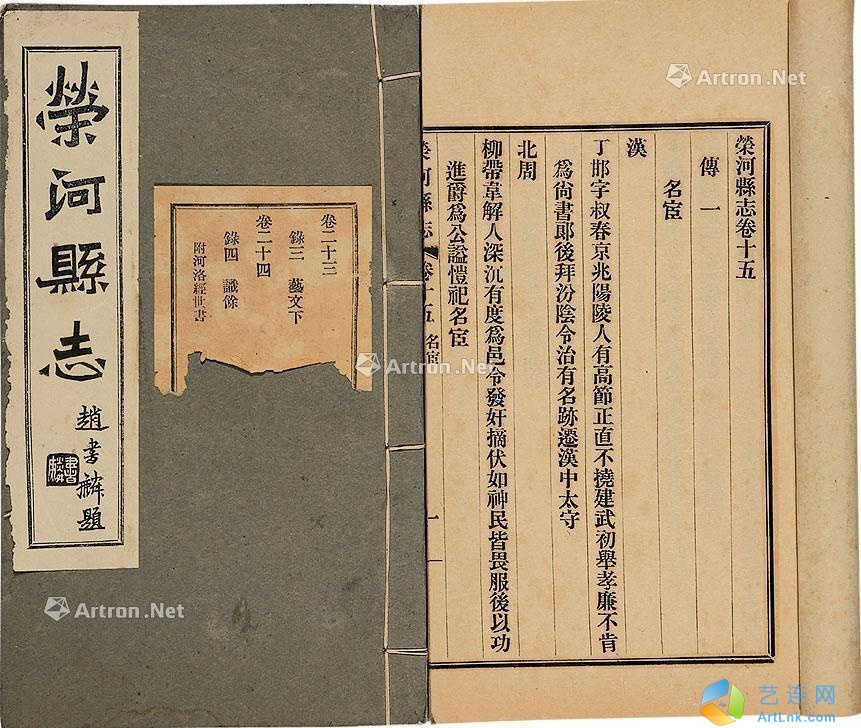 榮河縣志
趙書麟題
卷二十三
錄三 藝文下
卷二十四
錄四 識餘
附河洛經世書
榮河縣志卷十五
傳一
名宦
漢
丁邯字叔春京兆陽陵人有高節正直不撓建武初舉孝廉不肯
爲尚書郎後拜汾陰令治有名跡遷漢中太守
北周
柳帶韋解人深沉有度爲邑令發奸摘伏如神民皆畏服後以功
進爵爲公諡愷祀名宦
榮河縣志 卷十五 名宦 一
Artron.Net
Artron.Net
Artron.Net
艺连网
ArtLnk.com